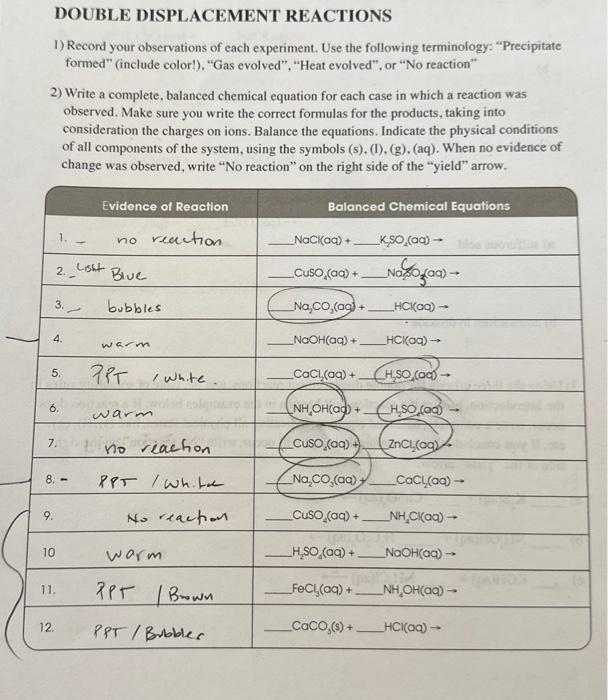 DOUBLE DISPLACEMENT REACTIONS
1) Record your observations of each experiment. Use the following terminology: “Precipitate
formed” (include color!), “Gas evolved”, “Heat evolved”, or “No reaction”
2) Write a complete, balanced chemical equation for each case in which a reaction was
observed. Make sure you write the correct formulas for the products, taking into
consideration the charges on ions. Balance the equations. Indicate the physical conditions
of all components of the system, using the symbols (s), (l), (g), (aq). When no evidence of
change was observed, write “No reaction” on the right side of the “yield” arrow.
Evidence of Reaction Balanced Chemical Equations
1. - no reaction ___NaCl(aq) + ___K₂SO₄(aq) →
2. Blue ___CuSO₄(aq) + ___(aq) →
3. - bubbles ___Na₂CO₃(aq) + ___HCl(aq) →
4. warm ___NaOH(aq) + ___HCl(aq) →
5. PPT / white. ___CaCl₂(aq) + ___H₂SO₄(aq) →
6. warm ___NH₄OH(aq) + ___H₂SO₄(aq) →
7. no reaction ___CuSO₄(aq) + ___ZnCl₂(aq) →
8. - PPT / white ___Na₂CO₃(aq) + ___CaCl₂(aq) →
9. No reaction ___CuSO₄(aq) + ___NH₄Cl(aq) →
10 warm ___H₂SO₄(aq) + ___NaOH(aq) →
11. PPT / Brown ___FeCl₃(aq) + ___NH₄OH(aq) →
12. PPT / Bubbles ___CaCO₃(s) + ___HCl(aq) →